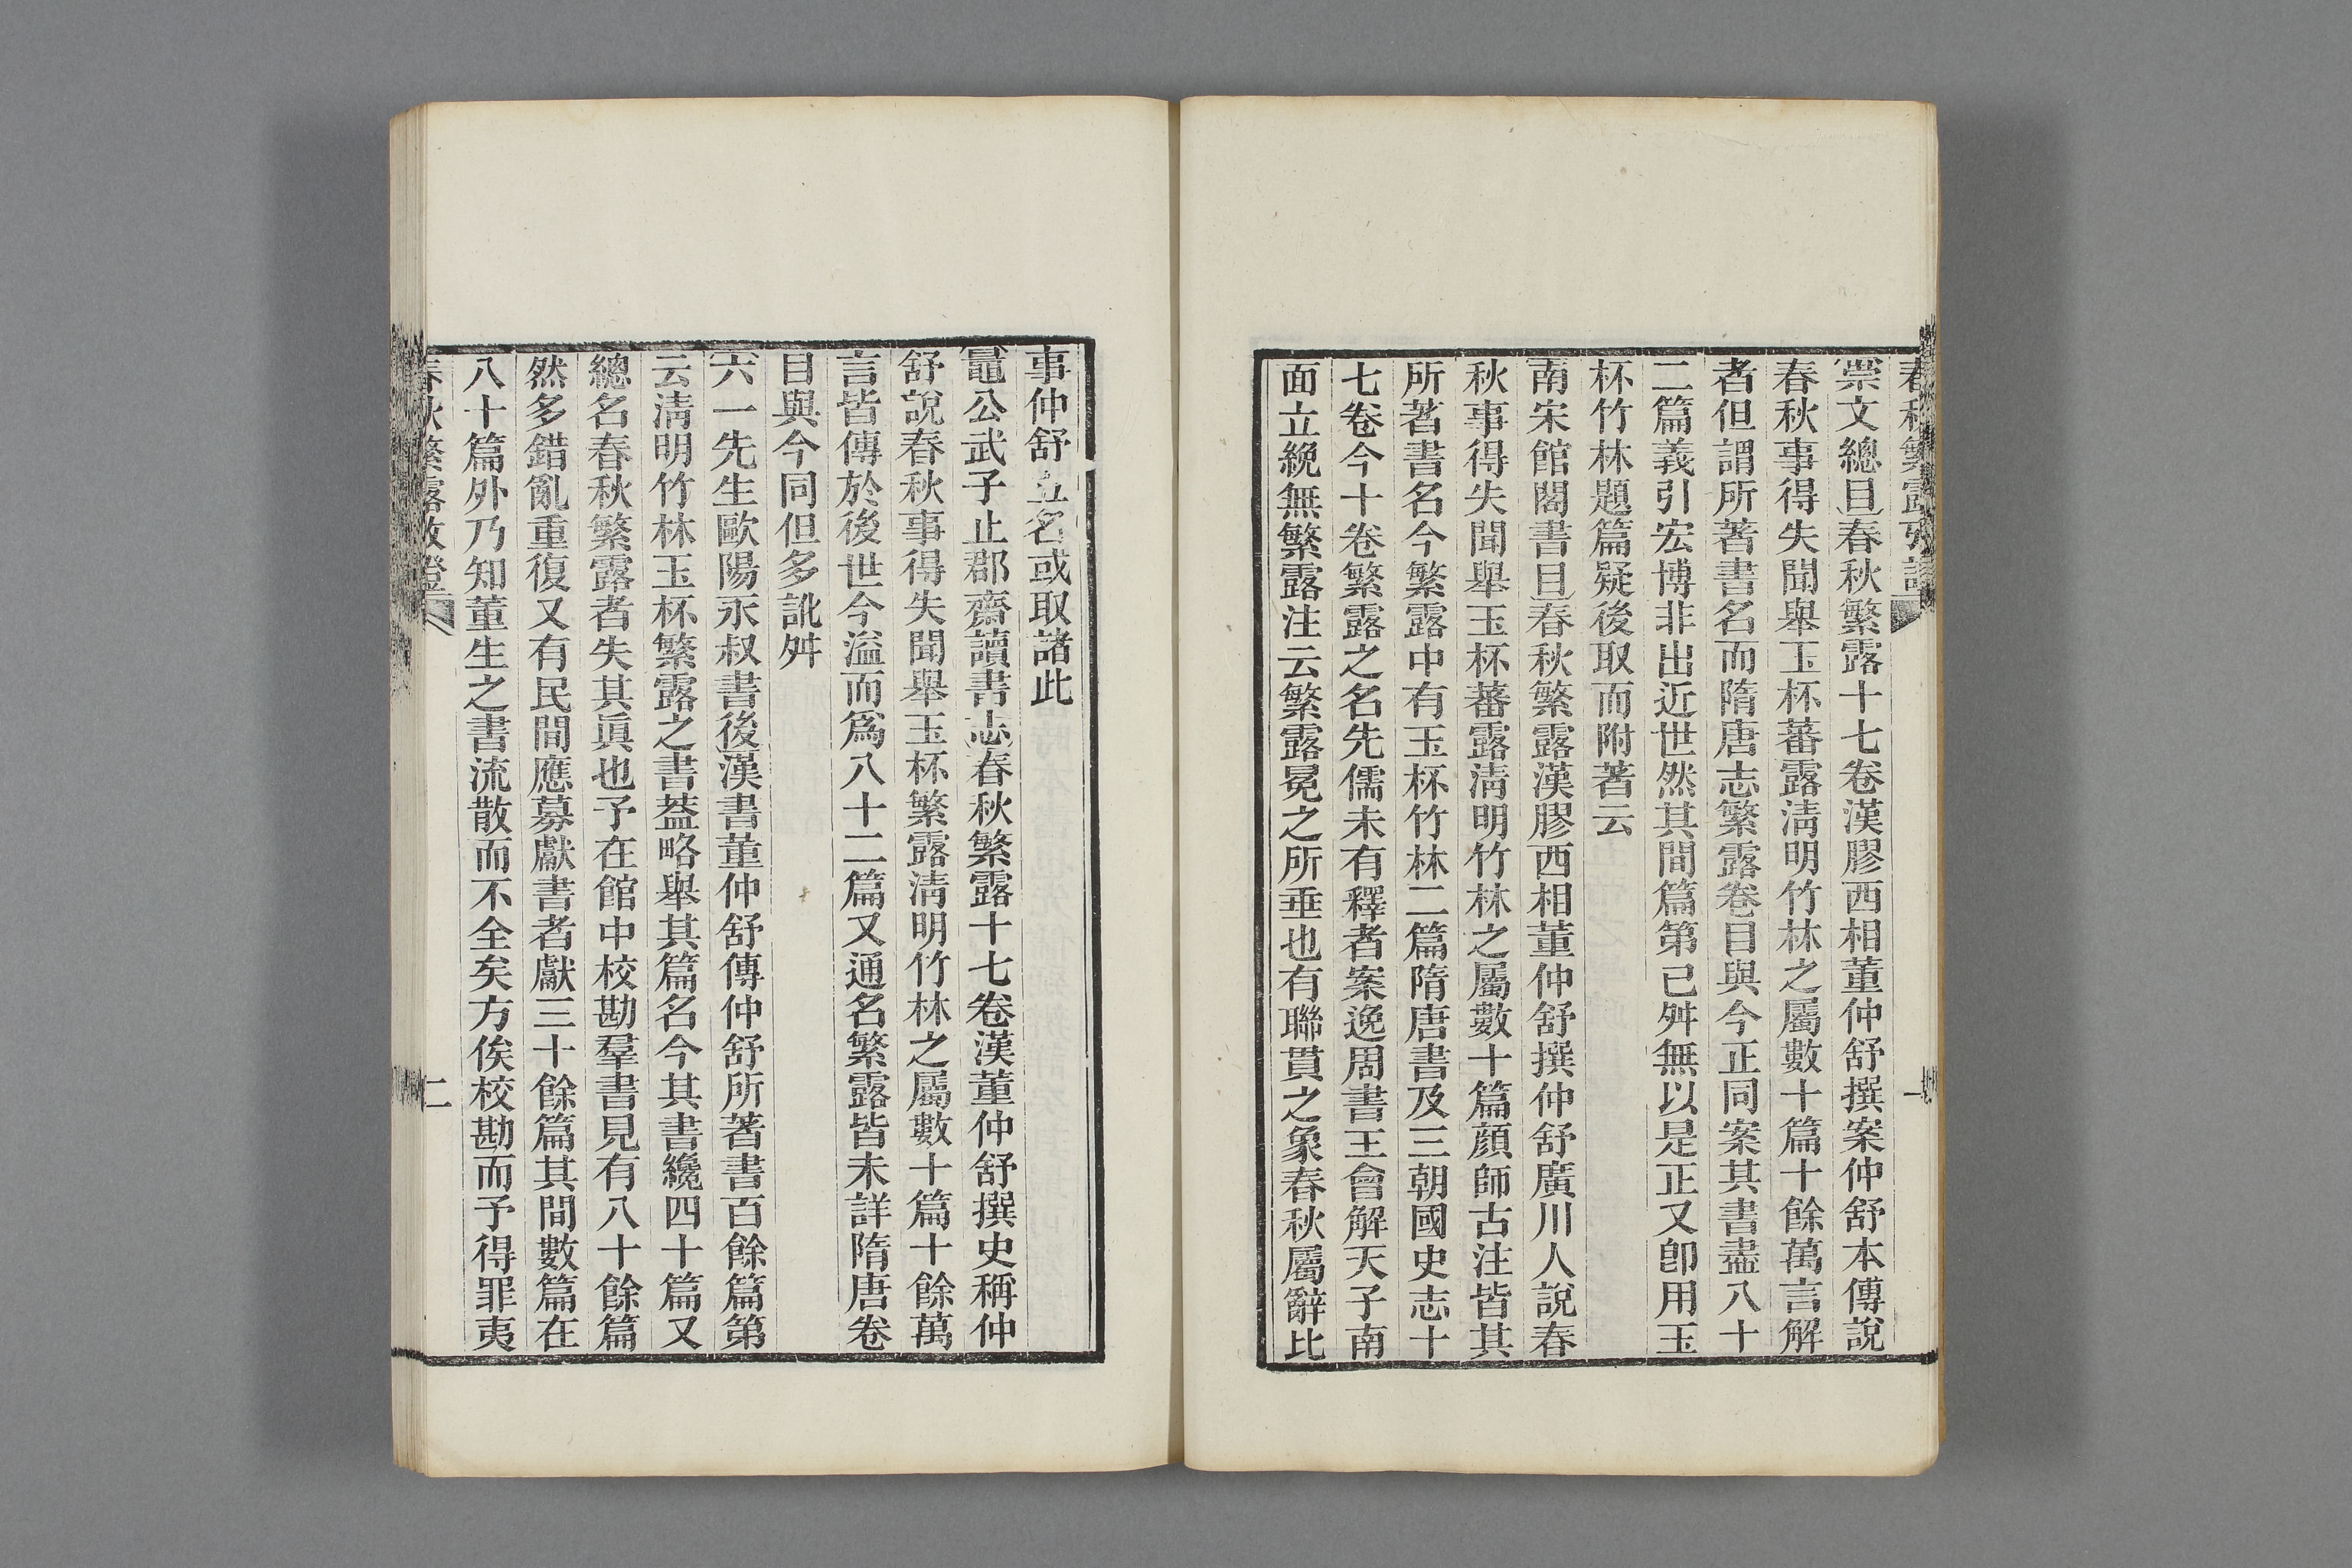 春秋繁露攷證
崇文總目春秋繁露十七卷漢膠西相董仲舒撰案仲舒本傳說
春秋事得失聞舉玉杯蕃露淸明竹林之屬數十篇十餘萬言解
者但謂所著書名而隋唐志繁露卷目與今正同案其書盡八十
二篇義引宏博非出近世然其間篇第已舛無以是正又卽用玉
杯竹林題篇疑後取而附著云
南宋館閣書目春秋繁露漢膠西相董仲舒撰仲舒廣川人說春
秋事得失聞舉玉杯蕃露淸明竹林之屬數十篇顏師古注皆其
所著書名今繁露中有玉杯竹林二篇隋唐書及三朝國史志十
七卷今十卷繁露之名先儒未有釋者案逸周書王會解天子南
面立絻無繁露注云繁露冕之所垂也有聯貫之象春秋屬辭比
一
事仲舒立名或取諸此
鼂公武子止郡齋讀書志春秋繁露十七卷漢董仲舒撰史稱仲
舒說春秋事得失聞舉玉杯繁露淸明竹林之屬數十篇十餘萬
言皆傳於後世今溢而爲八十二篇又通名繁露皆未詳隋唐卷
目與今同但多訛舛
六一先生歐陽永叔書後漢書董仲舒傳仲舒所著書百餘篇第
云淸明竹林玉杯繁露之書葢略舉其篇名今其書纔四十篇又
總名春秋繁露者失其眞也予在館中校勘羣書見有八十餘篇
然多錯亂重復又有民間應募獻書者獻三十餘篇其間數篇在
八十篇外乃知董生之書流散而不全矣方俟校勘而予得罪夷
春秋繁露攷證
二